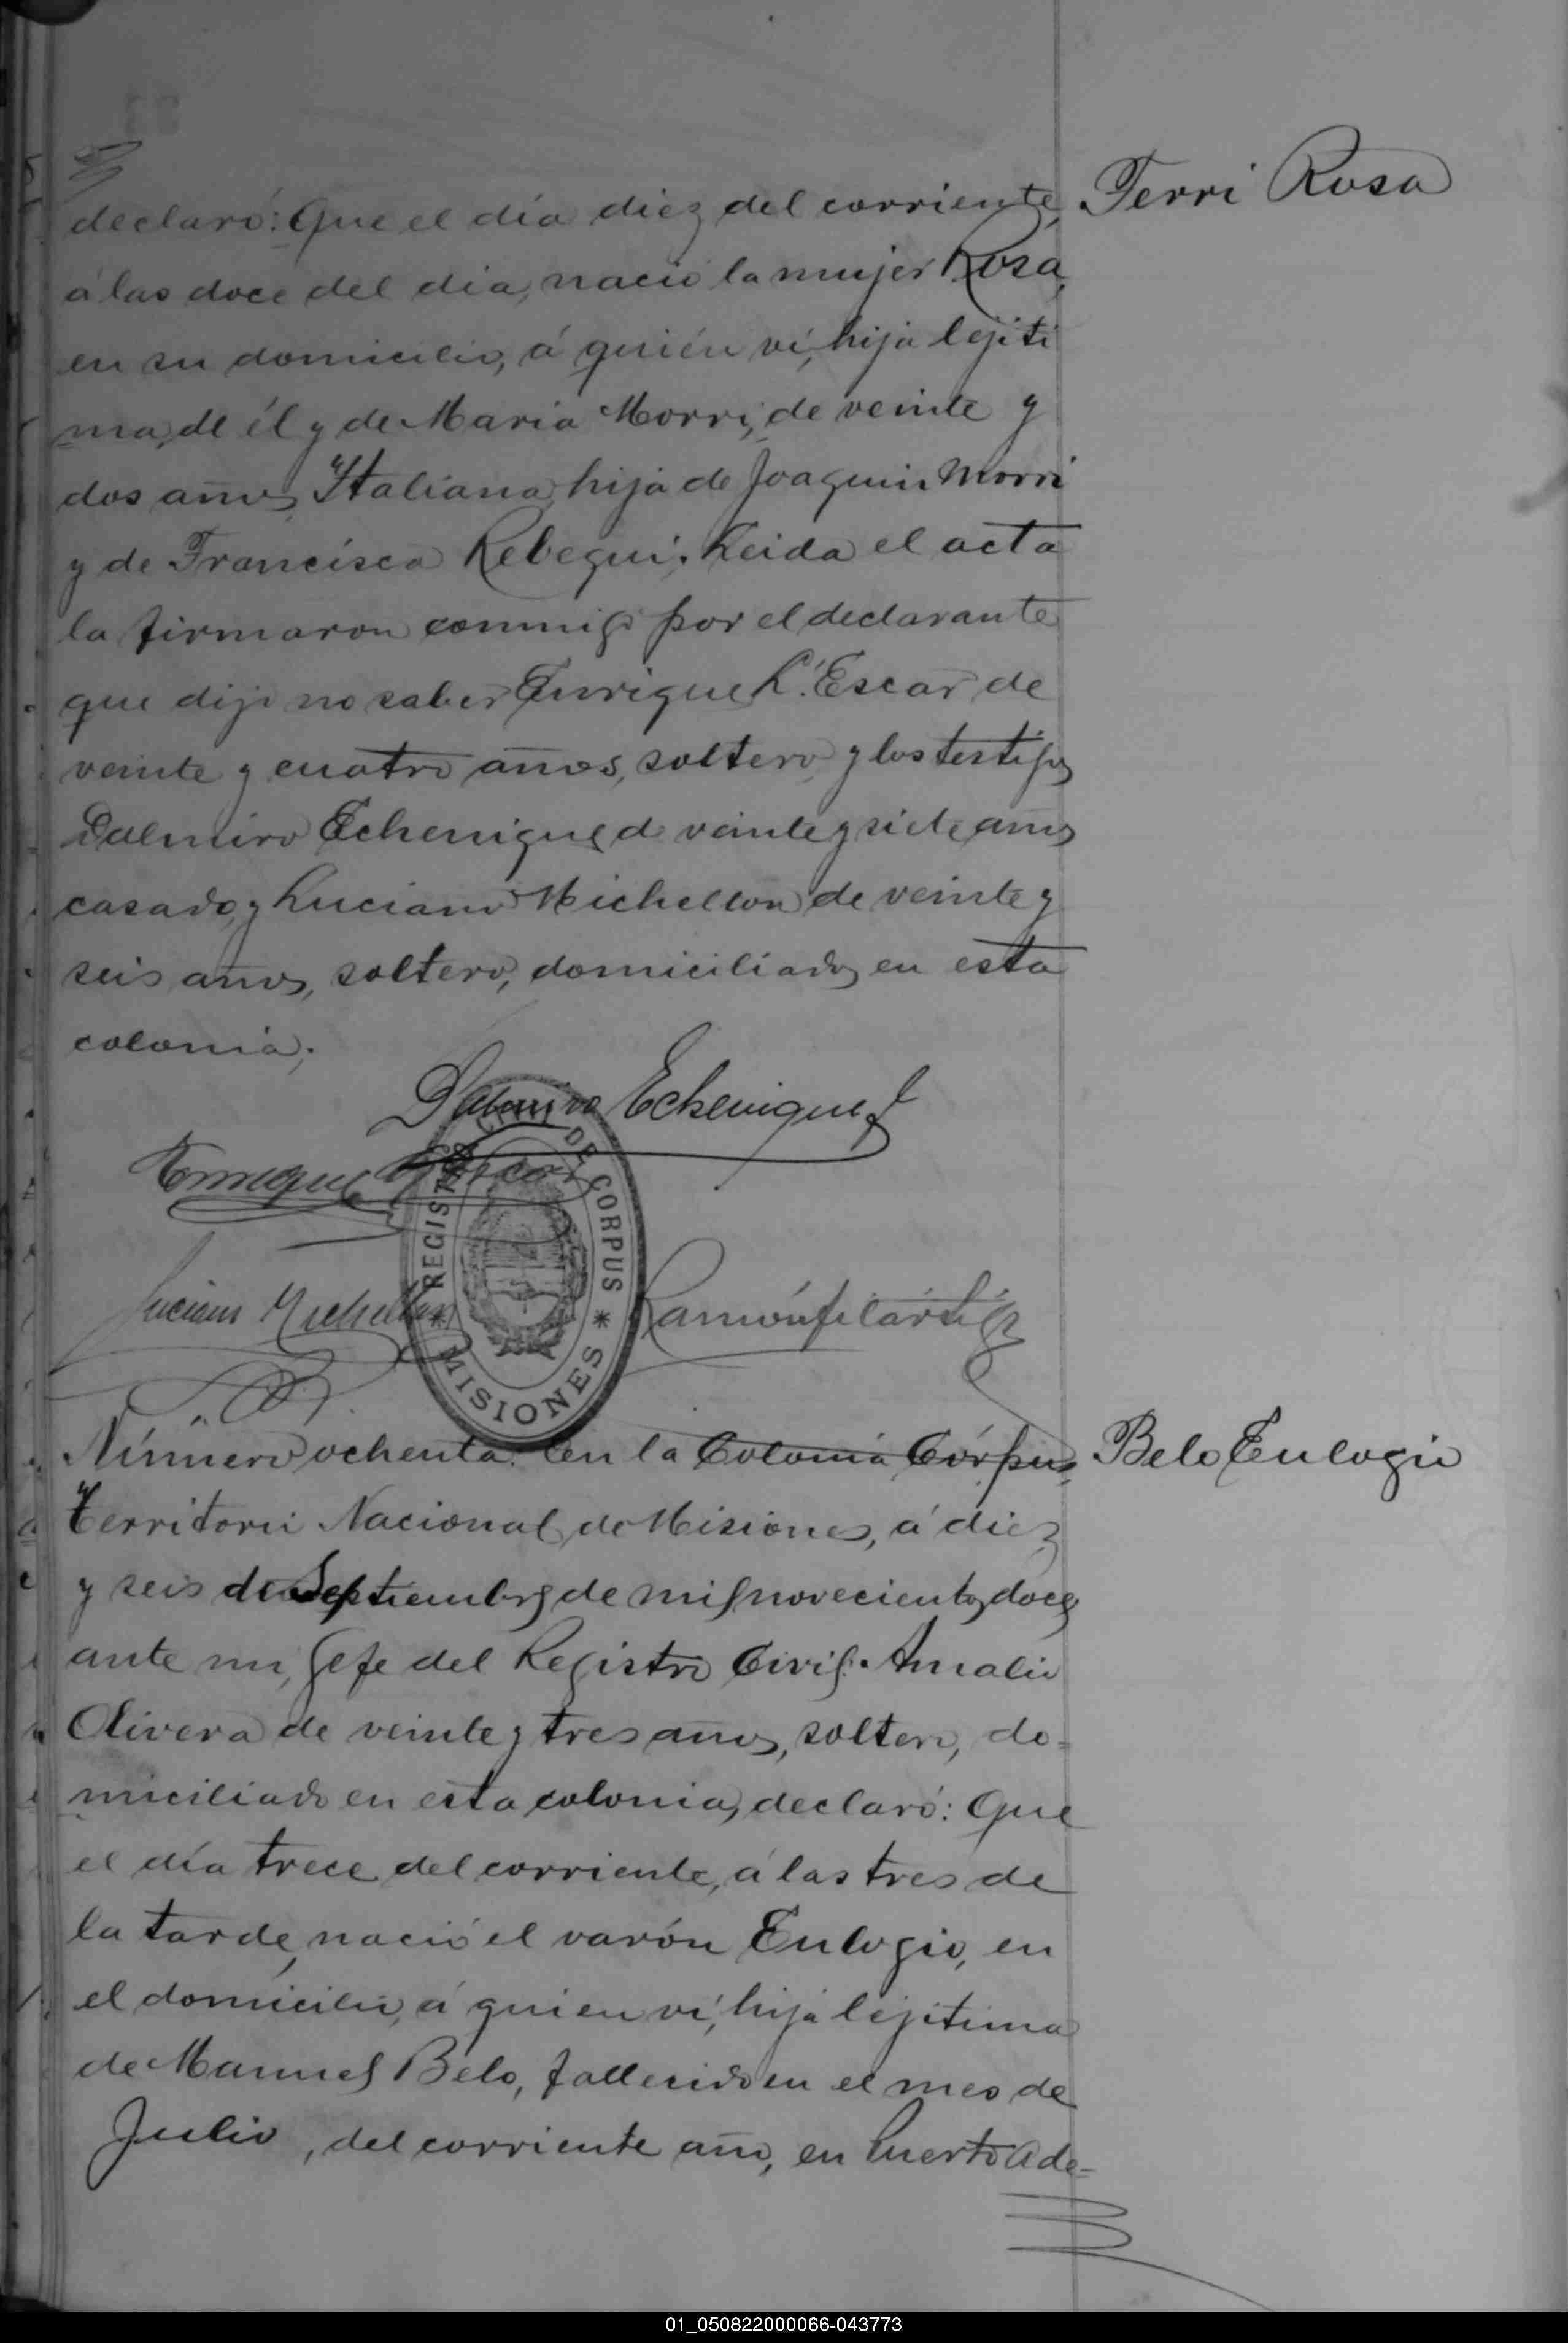 declaró: Que el día diez del corriente,
Terri Rosa
á las doce del dia, nació la mujer Rosa,
en su domicilio, á quién ví, hija lejiti
ma, de él y de Maria Morri, de veinte y
dos años, Italiana, hija de Joaquin Morri
y de Francisca Rebequi. Leida el acta
la firmaron conmigo por el declarante
que dijo no saber Enrique L'Escar de
veinte y cuatro años, soltero, y los testigos
Dalmiro Echenique de veinte y siete años
casado, y Luciano Michellon de veinte y
seis años, soltero, domiciliados en esta
colonia.
Dalmiro Echenique
Enrique
Luciano Michellon
Ramón
REGISTRO CIVIL DE CORPUS * MISIONES *
Número ochenta. En la Colonia Córpus,
Belo Eulogio
Territorio Nacional de Misiones, á diez
y seis de Septiembre de mil novecientos doce
ante mi, Gefe del Registro Civil. Amalio
Olivera de veinte y tres años, soltero, do=
miciliado en esta colonia, declaró: Que
el día trece del corriente, á las tres de
la tarde, nació el varón Eulogio, en
el domicilio, á quien ví, hijo lejitimo
de Manuel Belo, fallecido en el mes de
Julio, del corriente año, en Puerto Ade=
01_050822000066-043773